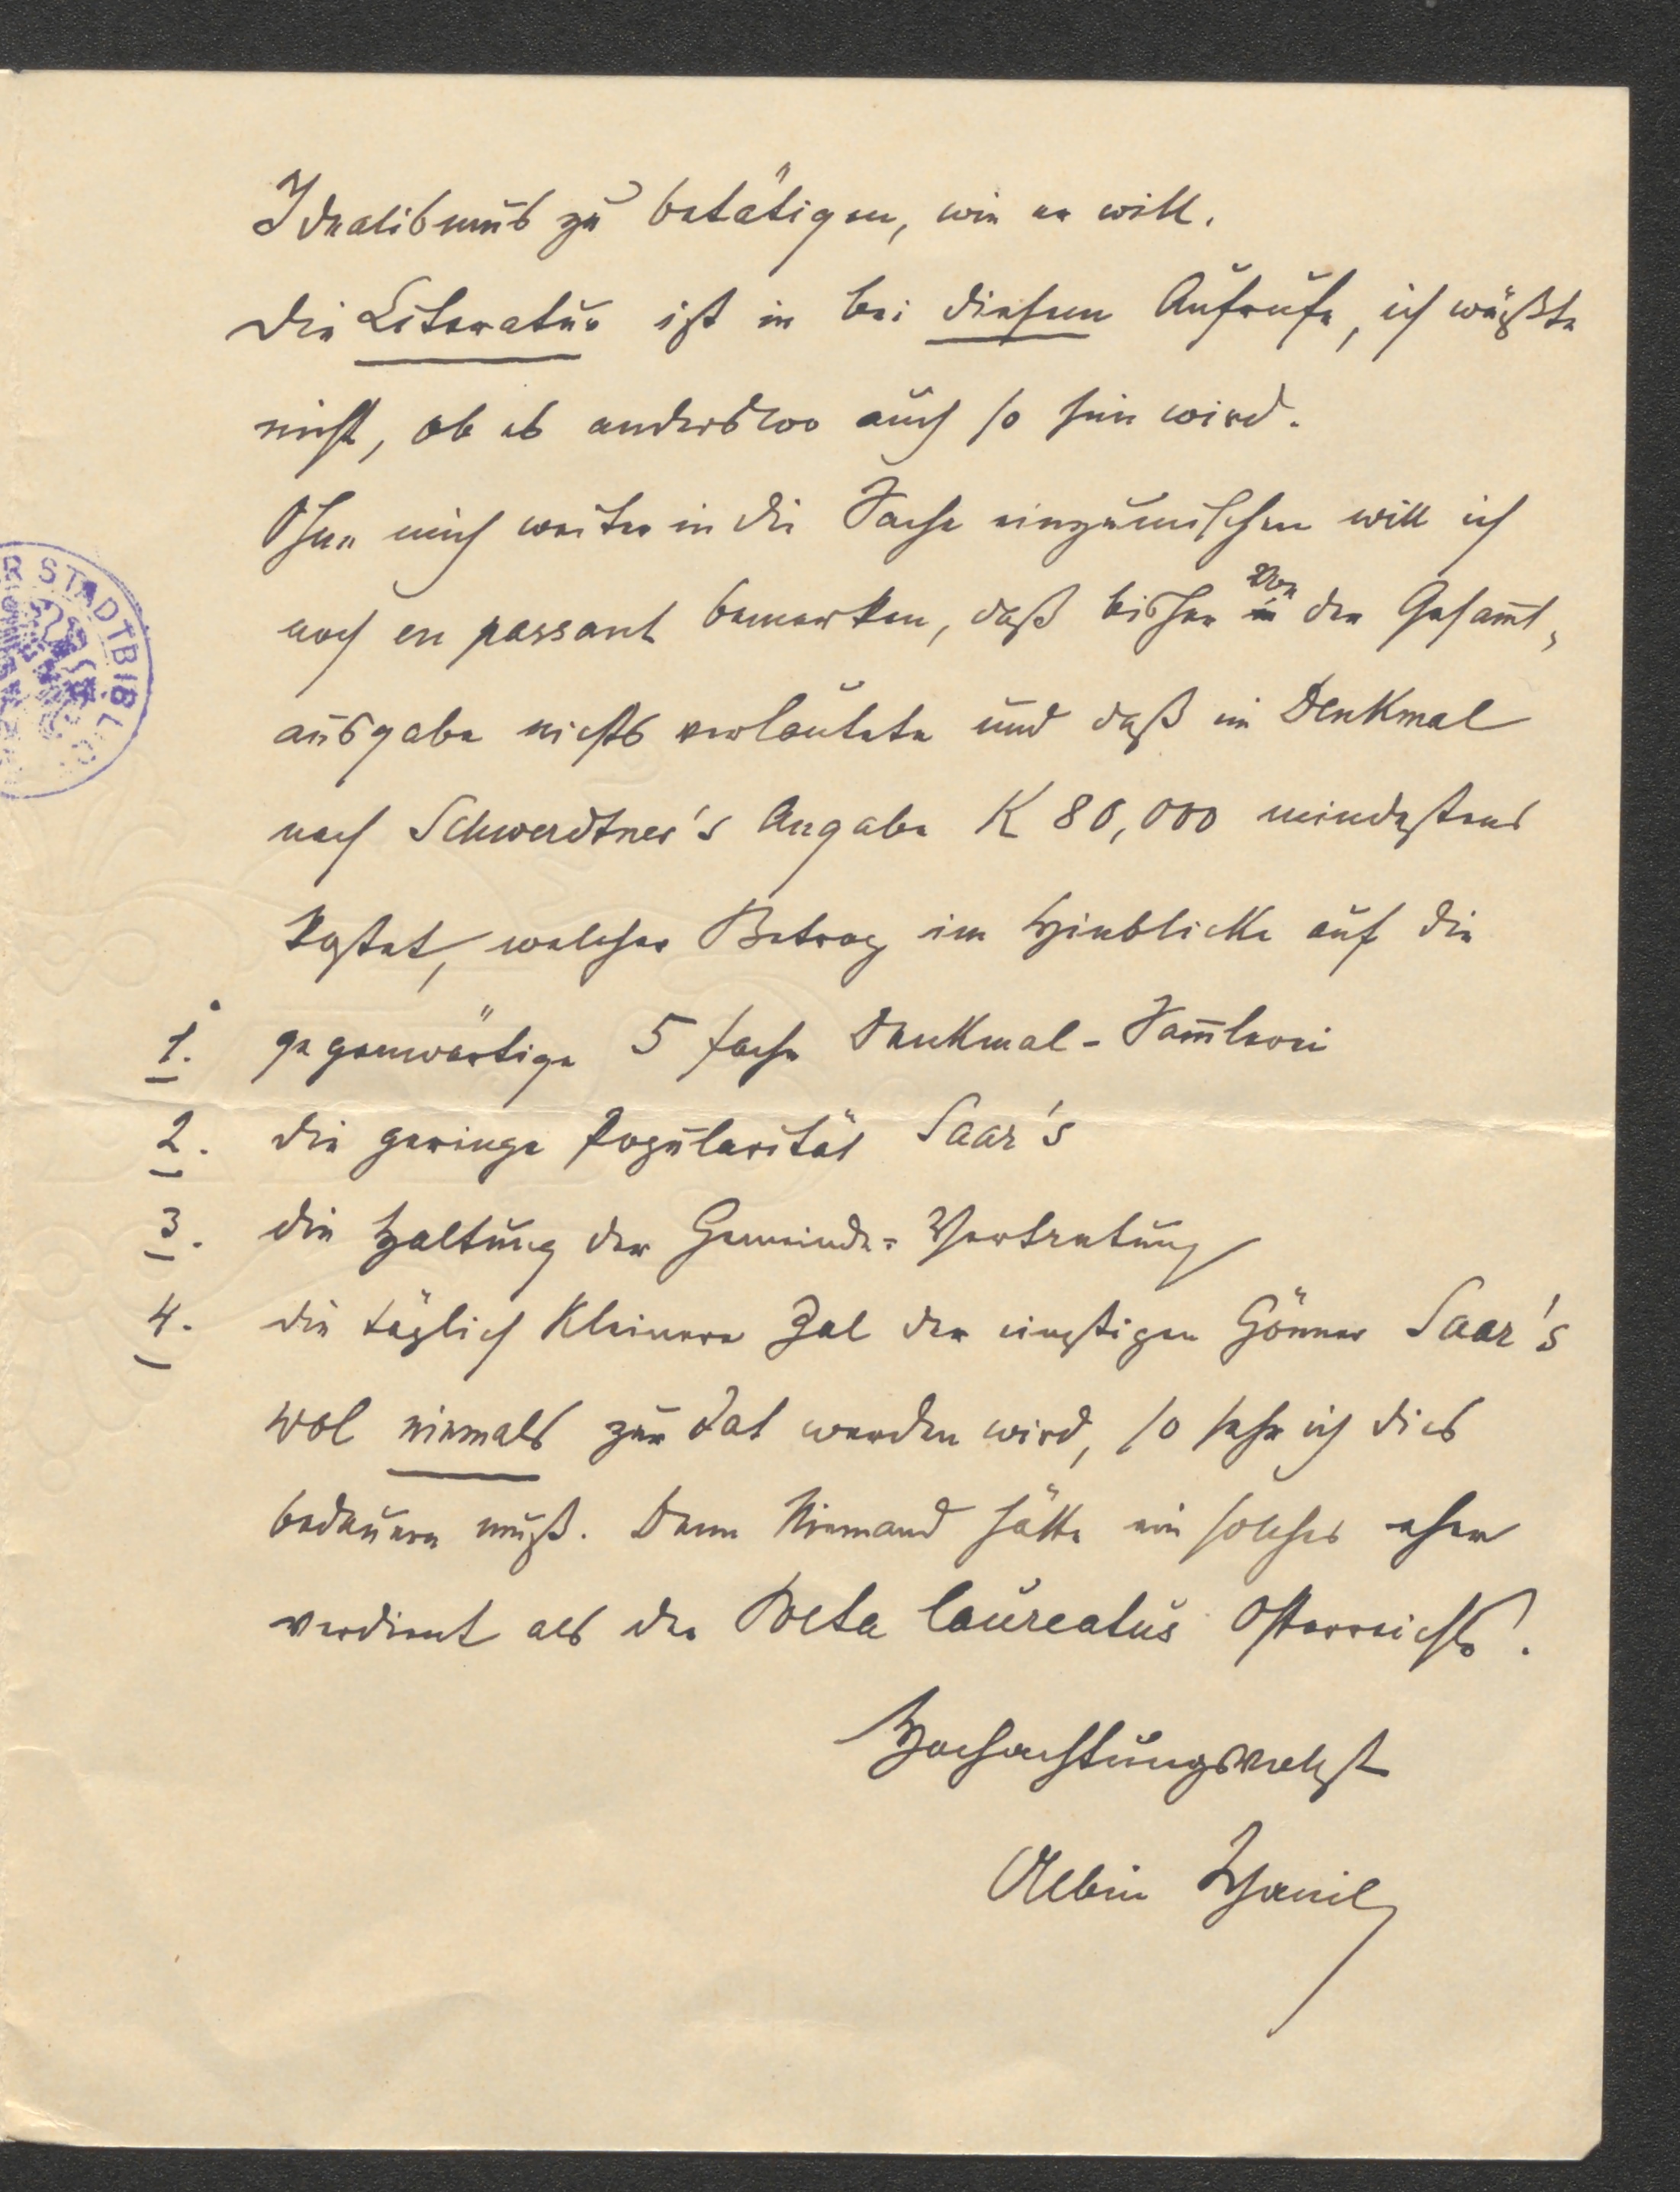 Idealismus zu betätigen, wie er will.
Die Literatur ist in bei diesem Aufrufe, ich wüßte
nicht, ob es anderswo auch so sein wird.
Ohne mich weiter in die Sache einzumischen will ich
noch en passant bemerken, daß bisher von der Gesam̅t-
ausgabe nichts verlautete und daß ein Denkmal
nach Schwerdtner's Angabe K 80,000 mindestens
kostet, welcher Betrag im Hinblicke auf die
1. gegenwärtige 5 fache Denkmal-Sam̅lerei
2. die geringe Popularität Saar's
3. die Haltung der Gemeinde-Vertretung
4. die täglich kleinere Zal der einstigen Gönner Saar's
wol niemals zur Tat werden wird, so sehr ich dies
bedauern muß. Denn Niemand hätte ein solches eher
verdient als der Poeta laureatus Österreichs.
Hochachtungsvollst
Albin
R STADTBIBL